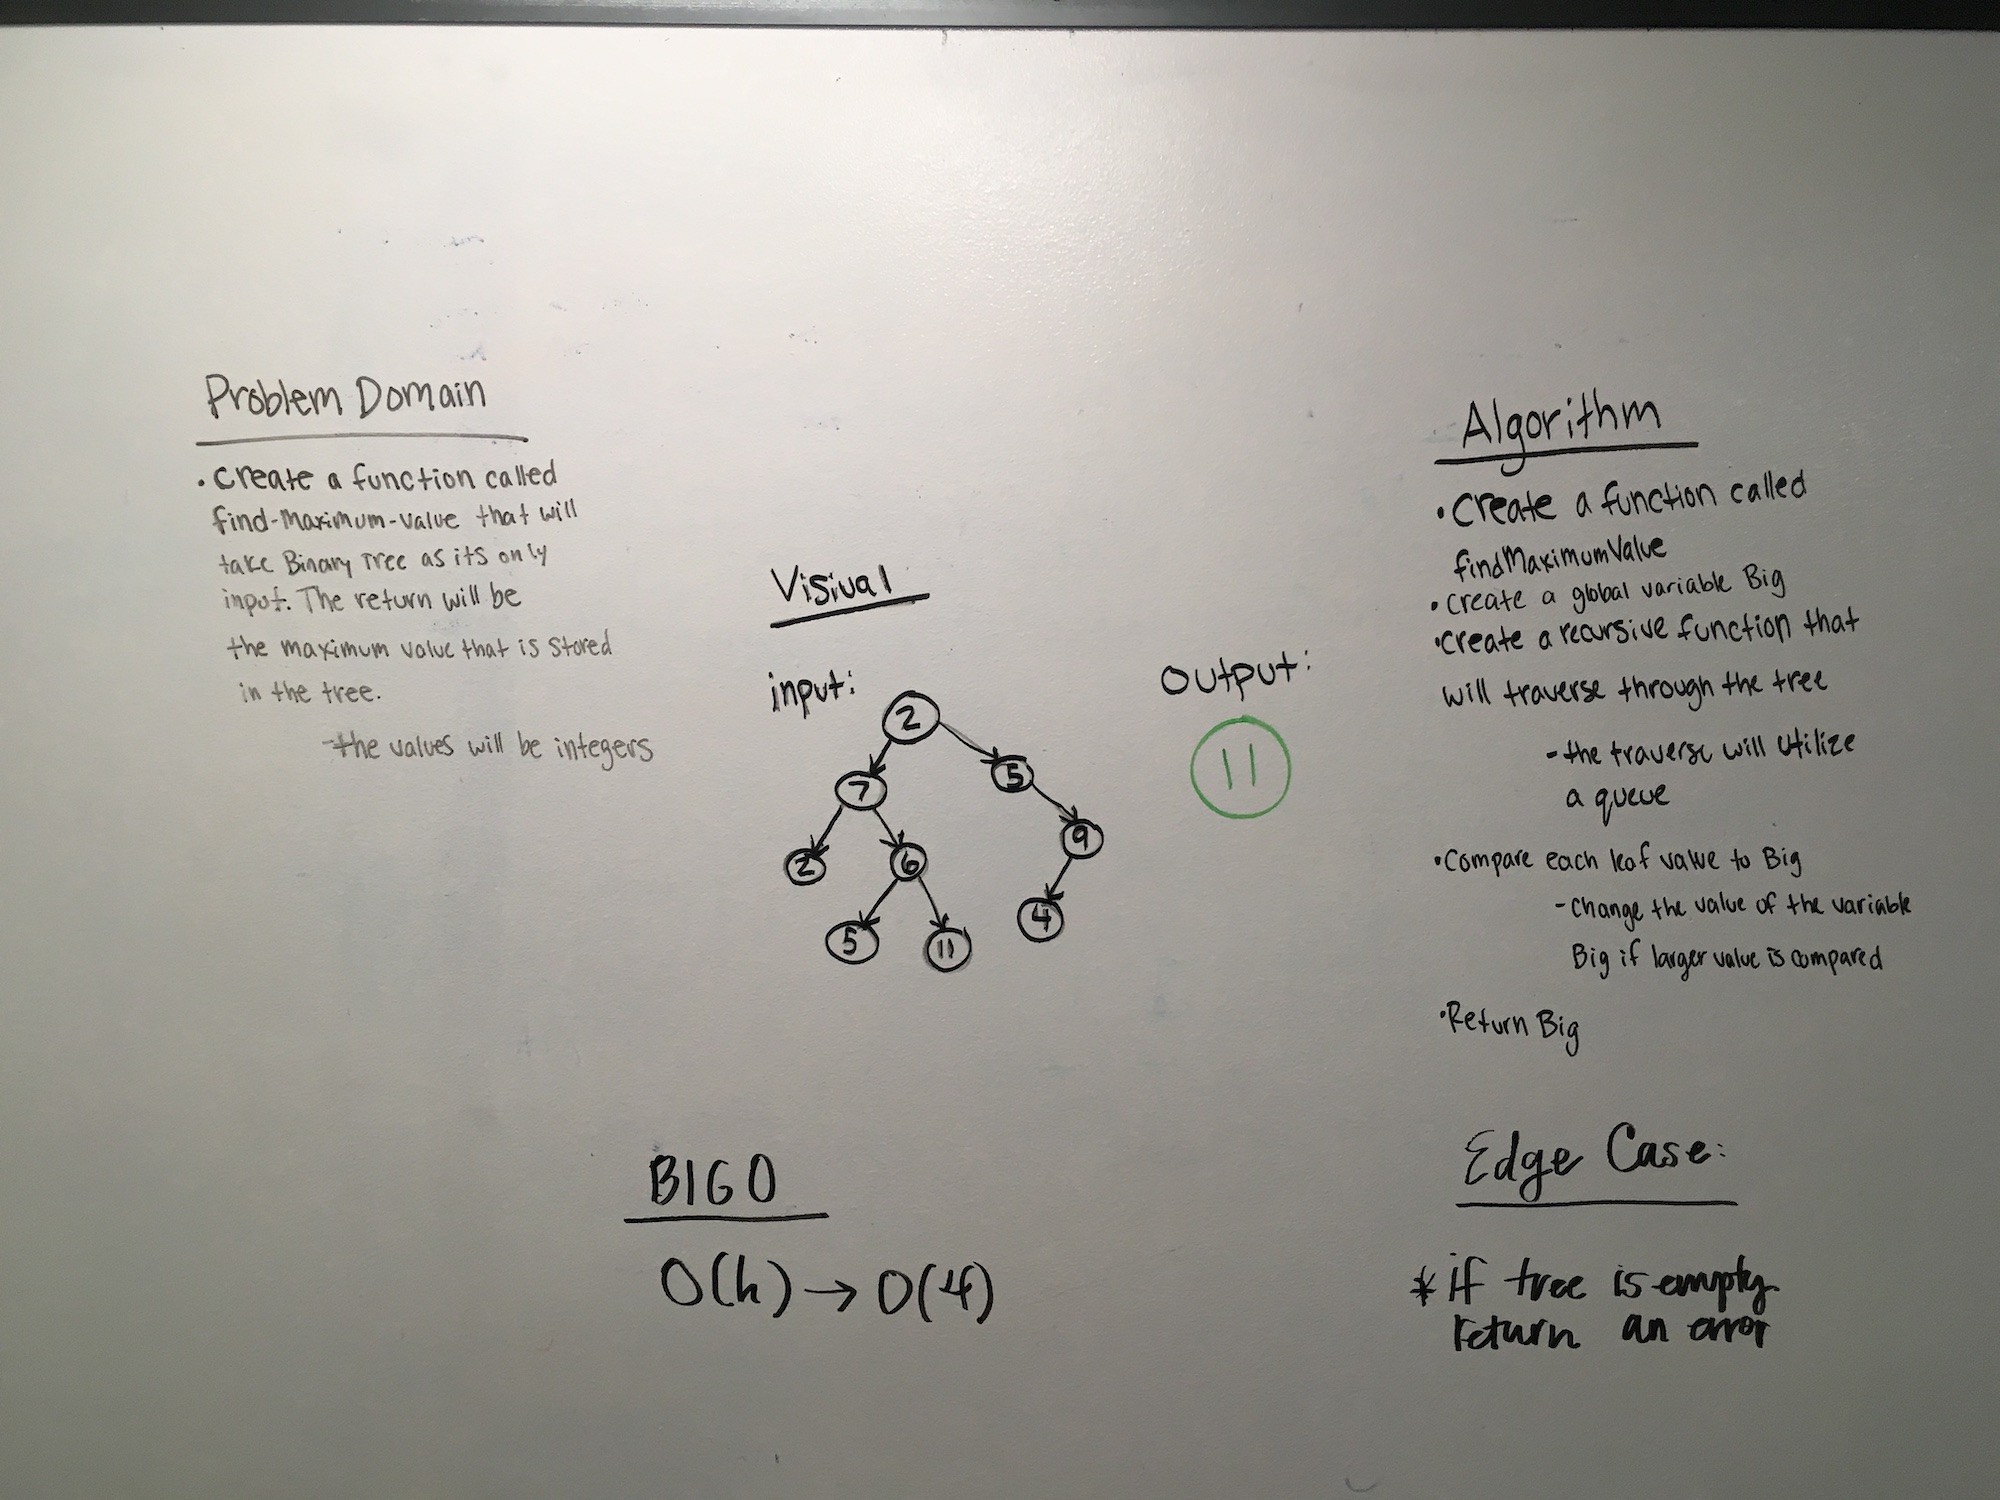 Problem Domain
• Create a function called
find-Maximum-value that will
take Binary Tree as its only
input. The return will be
the maximum value that is stored
in the tree.
-the values will be integers
Visiual
input:
2
7
5
2
6
9
5
11
4
output:
11
Algorithm
• Create a function called
findMaximumValue
• Create a global variable Big
• Create a recursive function that
will traverse through the tree
- the traverse will utilize
a queue
• Compare each leaf value to Big
- Change the value of the variable
Big if larger value is compared
• Return Big
BIG O
O(h) → O(4)
Edge Case:
* if tree is empty
return an error